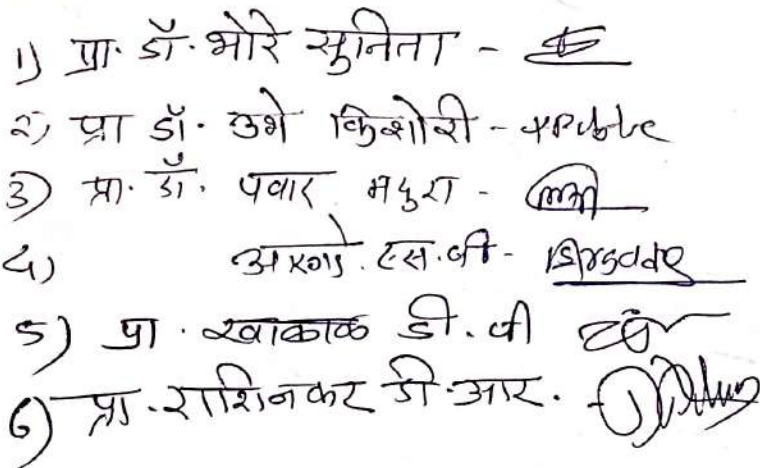 1) प्रा. डॉ. भोरे सुनिता -
२) प्रा डॉ. उभे किशोरी -
3) प्रा. डॉ. पवार मधुरा -
4) एस.बी -
5) प्रा. खाकाळ डी. बी
6) प्रा. राशिनकर डी.आर. -